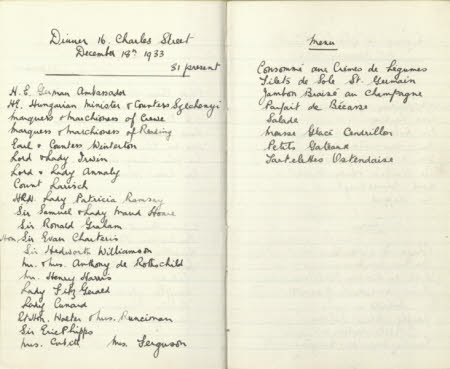 Dinner 16. Charles Street
December 18th 1933
31 present
H. E. German Ambassador
HE. Hungarian Minister & Countess Szechenyi
Marquess & Marchioness of Crewe
Marquess & Marchioness of Reading
Earl & Countess Winterton
Lord & Lady Irwin
Lord & Lady Annaly
Count Larisch
HRH. Lady Patricia Ramsay
Sir Samuel & Lady Maud Hoare
Sir Ronald Graham
Hon. Sir Evan Charteris
Sir Hedworth Williamson
Mr. & Mrs. Anthony de Rothschild
Mr. Henry Harris
Lady Fitz Gerald
Lady Cunard
Rt Hon. Walter & Mrs. Runciman
Sir Eric Phipps
Mrs. Mrs. Ferguson
Menu
Consommé aux Crèmes de Legumes
Filets de Sole St. Germain
Jambon Braisé au Champagne
Parfait de Bécasse
Salade
Mousse Glacé Cendrillon
Petits Gateaux
Tartelettes Ostendaise